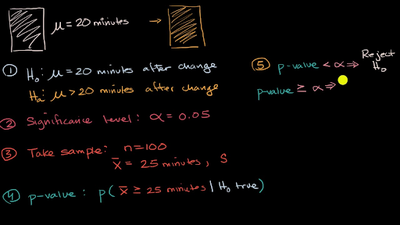 μ = 20 minutes
① H₀: μ = 20 minutes after change
Hₐ: μ > 20 minutes after change
② Significance level: α = 0.05
③ Take sample: n=100
x̄ = 25 minutes, S
④ p-value: p( x̄ ≥ 25 minutes | H₀ true)
⑤ p-value < α ⇒ Reject H₀
p-value ≥ α ⇒